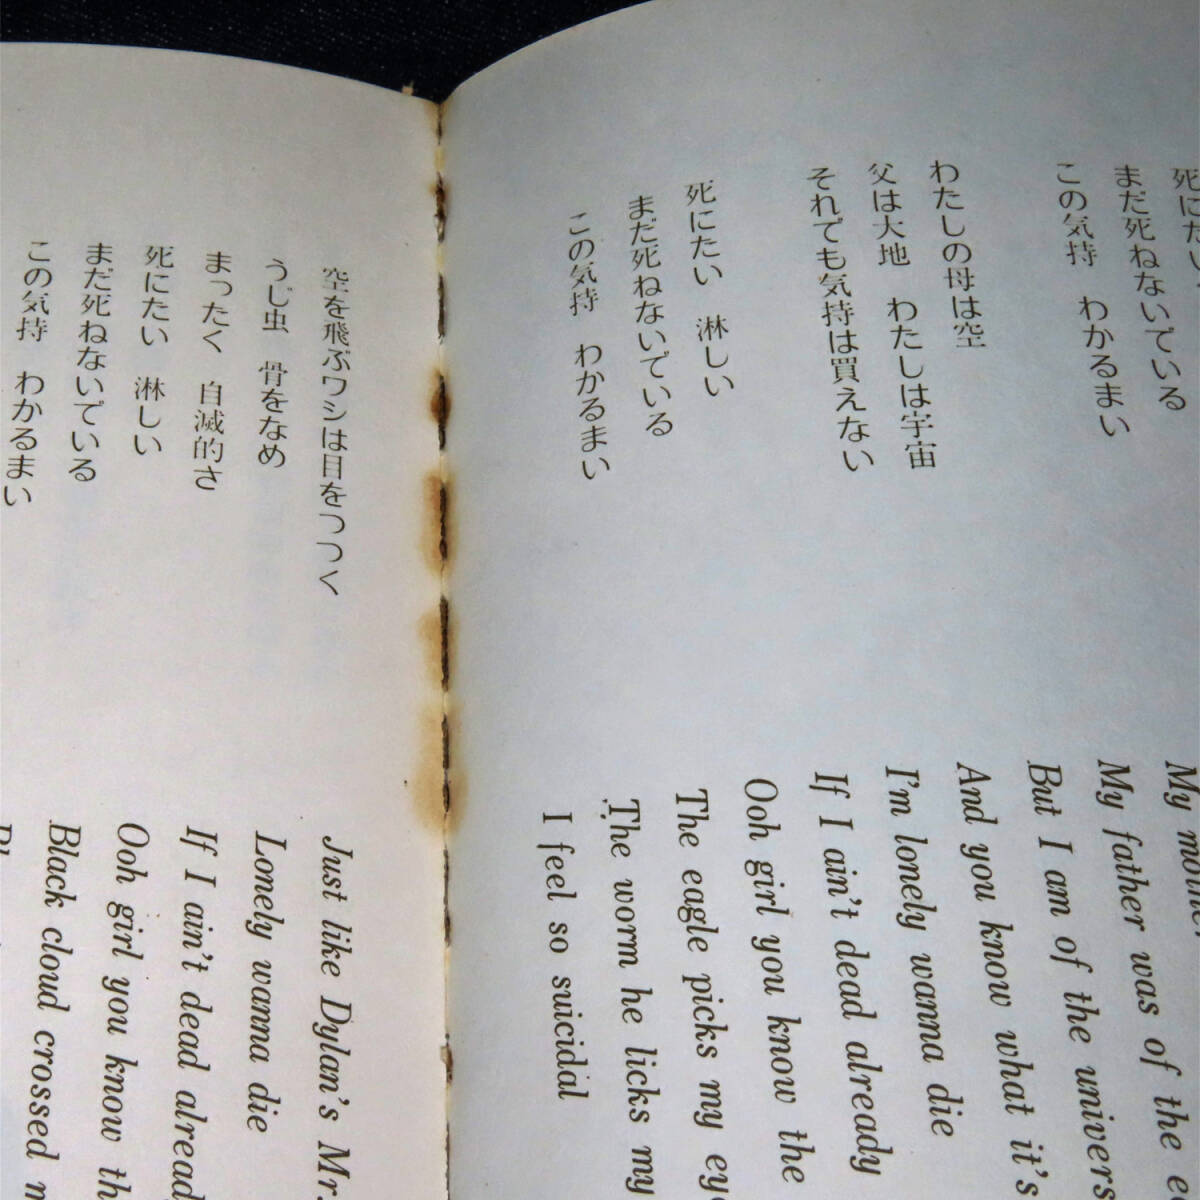 死にたい
まだ死ねないでいる
この気持　わかるまい
わたしの母は空
父は大地　わたしは宇宙
それでも気持は買えない
死にたい　淋しい
まだ死ねないでいる
この気持　わかるまい
空を飛ぶワシは目をつつく
うじ虫　骨をなめ
まったく　自滅的さ
死にたい　淋しい
まだ死ねないでいる
この気持　わかるまい
My mother
My father was of the
But I am of the univers
And you know what it's
I'm lonely wanna die
If I ain't dead already
Ooh girl you know the
The eagle picks my
The worm he licks my
I feel so suicidal
Just like Dylan's Mr.
Lonely wanna die
If I ain't dead already
Ooh girl you know
Black cloud crossed